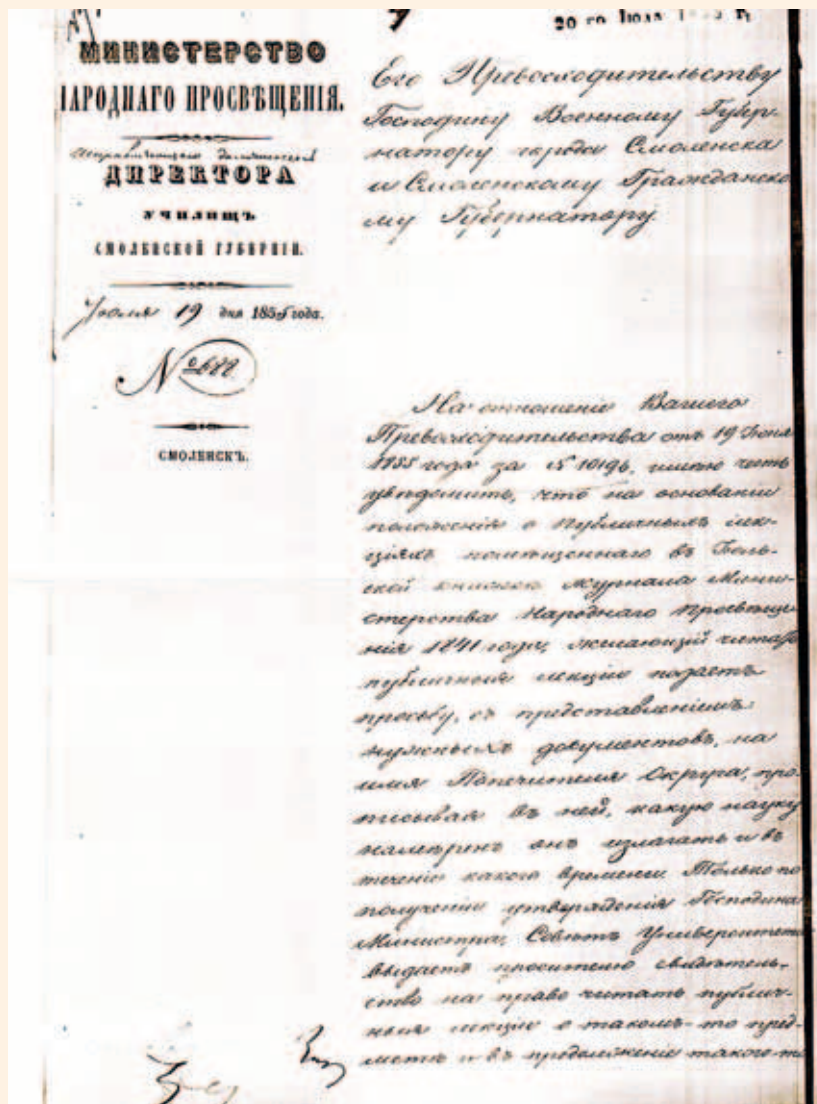 20 го Июля
МИНИСТЕРСТВО
НАРОДНАГО ПРОСВѢЩЕНІЯ.
ДИРЕКТОРА
УЧИЛИЩЪ
СМОЛЕНСКОЙ ГУБЕРНІИ.
Іюля 19 дня 1855 года.
№ 688
СМОЛЕНСКЪ.
Его Превосходительству
Господину Военному Губер-
натору города Смоленска
и Смоленскому Гражданско
му Губернатору.
На отношеніе Вашего
Превосходительства отъ 19 Іюня
1855 года за № имѣю честь
увѣдомить, что на основаніи
положенія о публичныхъ лек-
ціяхъ помѣщеннаго въ Іюль-
ской книжкѣ журнала Мини-
стерства Народнаго Просвѣще-
нія 1841 года, желающій читать
публичныя лекціи подаетъ
прозьбу, съ представленіемъ
нужныхъ документовъ, на
имя Попечителя Округа, про-
писывая въ ней, какую науку
намѣренъ онъ излагать и въ
теченіе какого времени. Только по
полученіи утвержденія Господина
Министра, Совѣтъ Университета
выдаетъ просителю свидѣтель-
ство на право читать публич-
ныя лекціи о такомъ-то пред-
метѣ и въ продолженіе такого-то